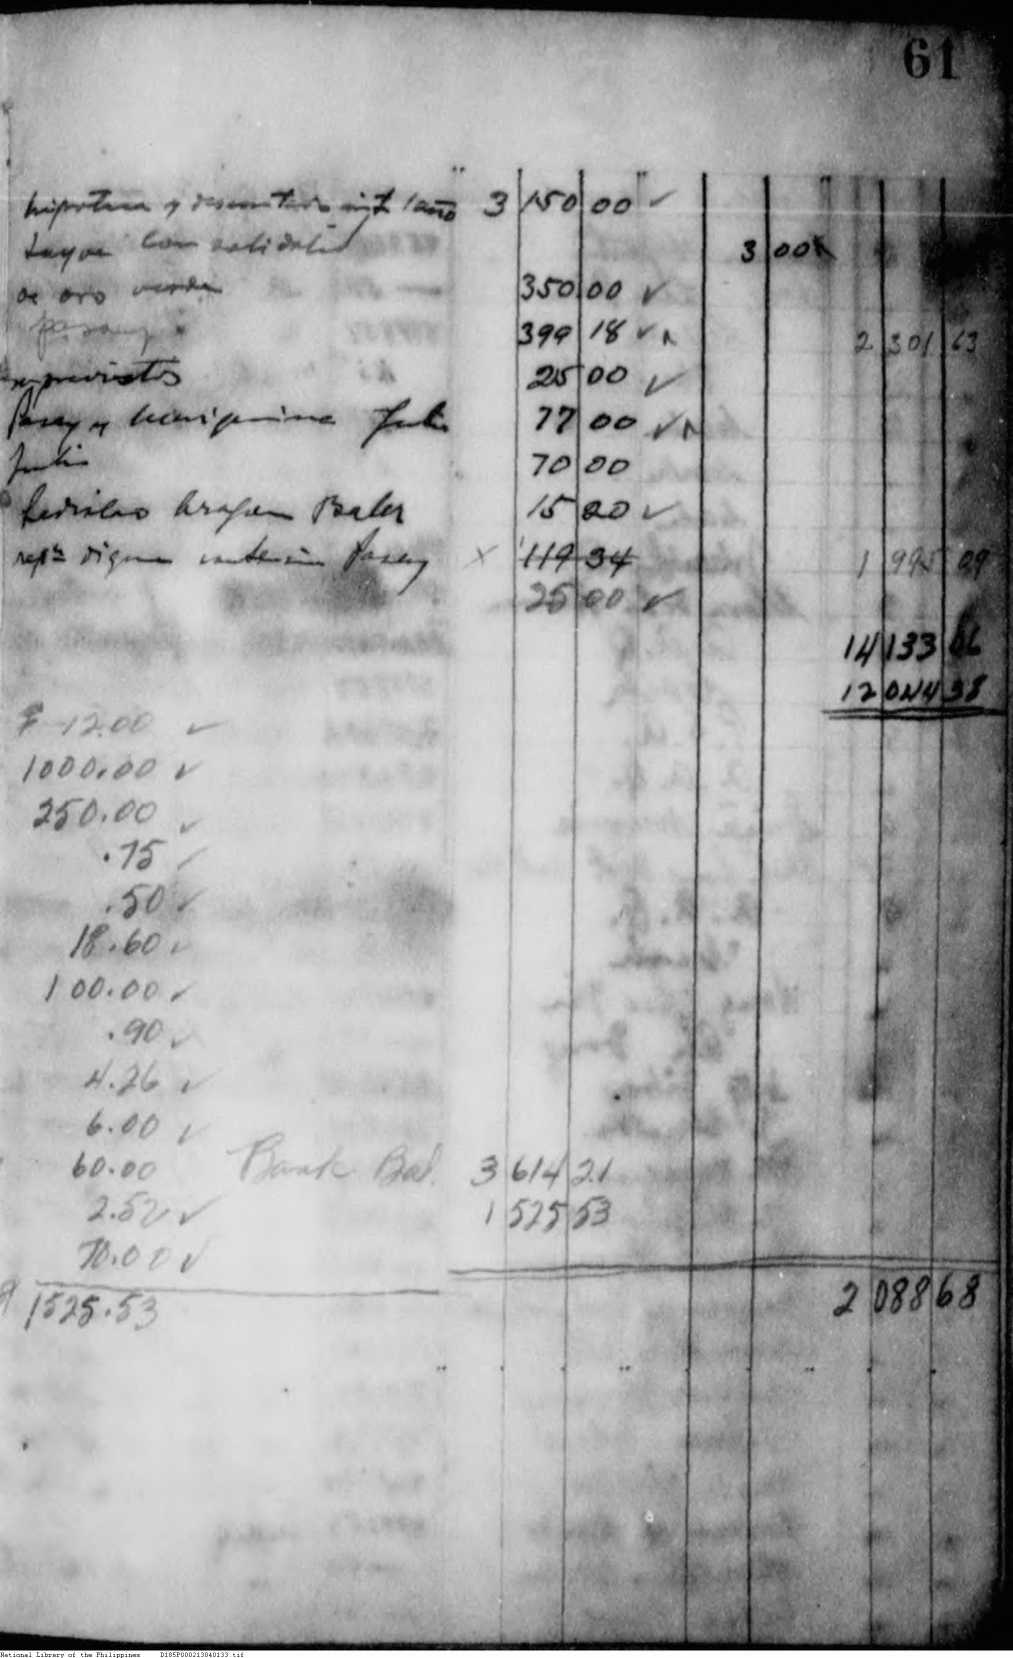 61
hipoteca y descontado int 1 año 3 150 00 ✓
3 00
de oro 350 00 ✓
Pasay 399 18 ✓ 2 301 63
imprevistos 25 00 ✓
Pasay y Mariquina Julio 77 00 ✓
Julio 70 00
Ladislao Aragon Baler 15 20 ✓
Pasay x 119 34 1 995 09
25 00 ✓
14 133 06
12 044 38
₱ 12.00 ✓
1000.00 ✓
250.00 ✓
.75 ✓
.50 ✓
18.60 ✓
100.00 ✓
.90 ✓
4.26 ✓
6.00 ✓
60.00 Bank Bal. 3 614 21
2.52 ✓ 1 525 53
70.00 ✓
1525.53 2 088 68
National Library of the Philippines D185P000213040133.tif